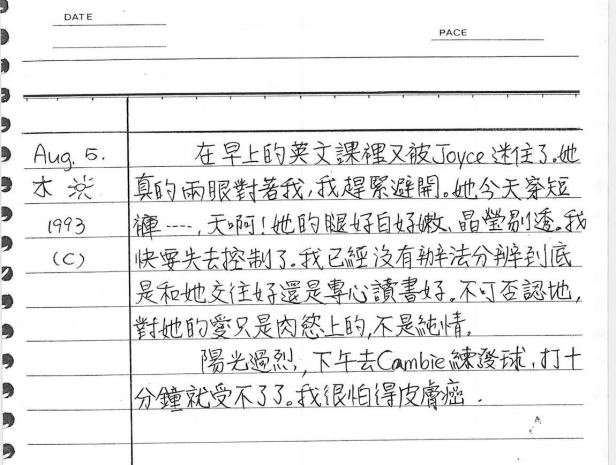 DATE
PACE
Aug. 5.
木
1993
(C)
在早上的英文課裡又被Joyce迷住了.她
真的兩眼對著我,我趕緊避開。她今天穿短
褲----,天啊!她的腿好白好嫩、晶瑩剔透。我
快要失去控制了。我已經沒有辦法分辨到底
是和她交往好還是專心讀書好。不可否認地,
對她的愛只是肉慾上的,不是純情.
陽光過烈,下午去Cambie練發球,打十
分鐘就受不了了。我很怕得皮膚癌.